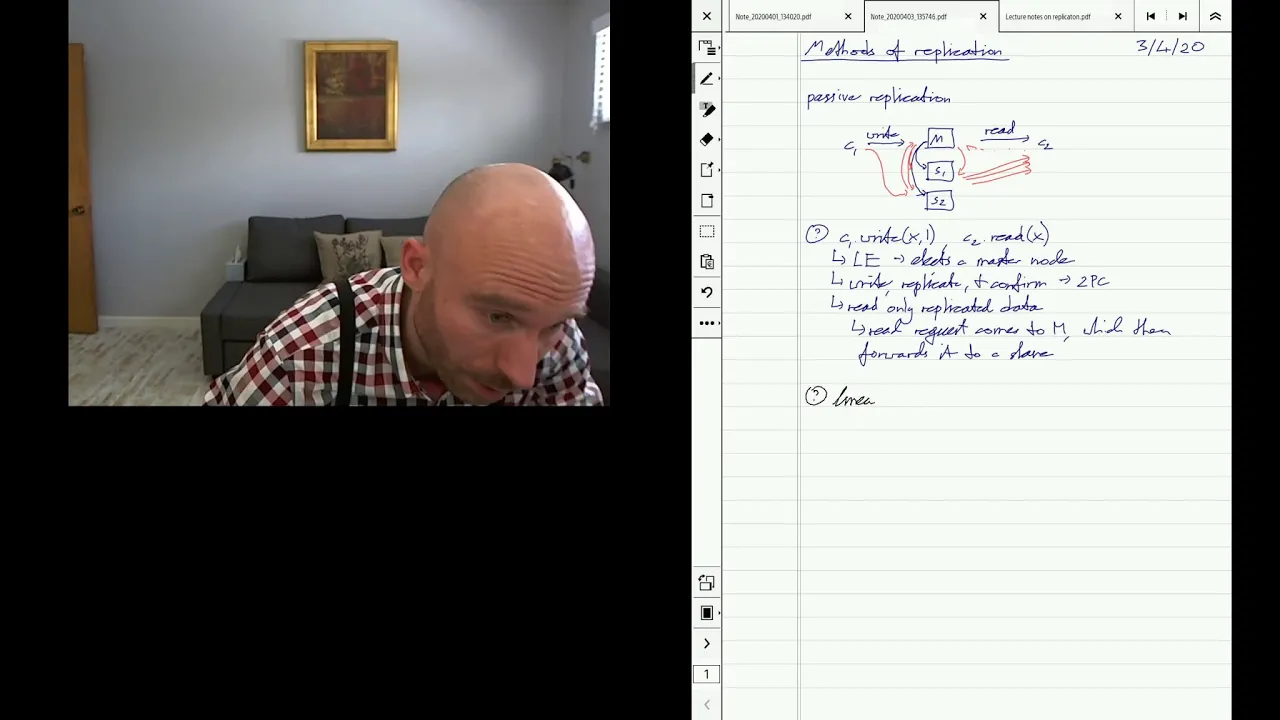 Note_20200401_134020.pdf
Note_20200403_135746.pdf
Lecture notes on replicaton.pdf
Methods of replication 3/4/20
passive replication
write M read
c1 c2
S1
S2
? c1.write(x,1), c2.read(x)
↳ LE → elects a master node
↳ write, replicate, + confirm → 2PC
↳ read only replicated data
↳ read request comes to M, which then
forwards it to a slave
? linea
1